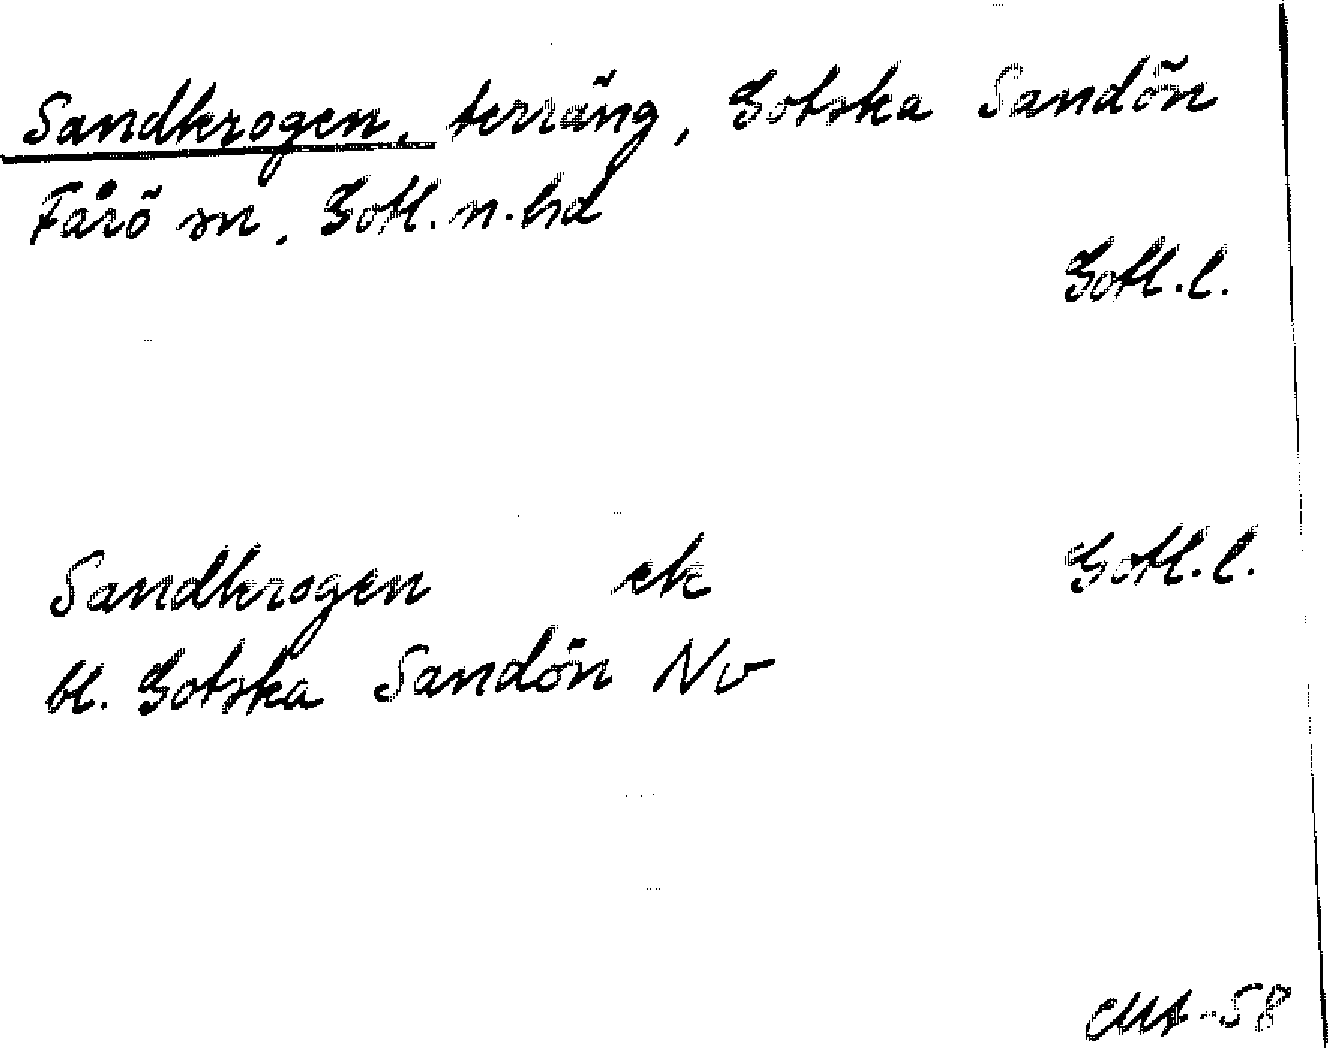 Sandkrogen, terräng, Gotska Sandön
Fårö sn, Gotl. n. hd
Gotl. l.
Sandkrogen ek Gotl. l.
bl. Gotska Sandön Nv
-58